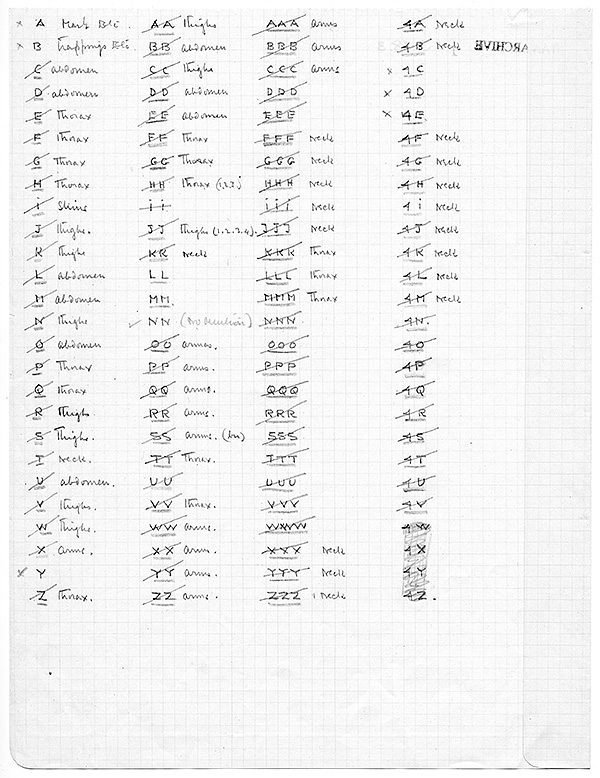 x A Mark Bli. AA Thighs AAA arms 4A Neck
x B Trappings Bli. BB abdomen BBB arms 4B Neck ARCHIVE
C abdomen CC Thighs CCC arms x 4C
D abdomen DD abdomen DDD x 4D
E Thorax EE abdomen EEE x 4E
F Thorax FF Thorax FFF Neck 4F Neck
G Thorax GG Thorax GGG Neck 4G Neck
H Thorax HH Thorax (1.2.3.) HHH Neck 4H Neck
i Shins ii iii Neck 4i Neck
J Thighs. JJ Thighs (1.2.3.4.) JJJ Neck 4J Neck
K Thighs KK Neck KKK Thorax 4K Neck
L abdomen LL LLL Thorax 4L Neck
M abdomen MM. MMM Thorax 4M Neck
N Thighs ✓ NN (No mention) NNN. 4N.
O abdomen OO arms. OOO 4O
P Thorax PP arms. PPP 4P
Q Thorax QQ arms. QQQ 4Q
R Thighs RR arms. RRR 4R
S Thighs. SS arms. SSS 4S
T Neck. TT Thorax. TTT 4T
U abdomen. UU UUU 4U
V Thighs. VV Thorax. VVV 4V
W Thighs. WW arms. WWW 4W
X arms. XX arms. XXX Neck 4X
x Y YY arms. YYY Neck 4Y
Z Thorax. ZZ arms. ZZZ Neck 4Z.